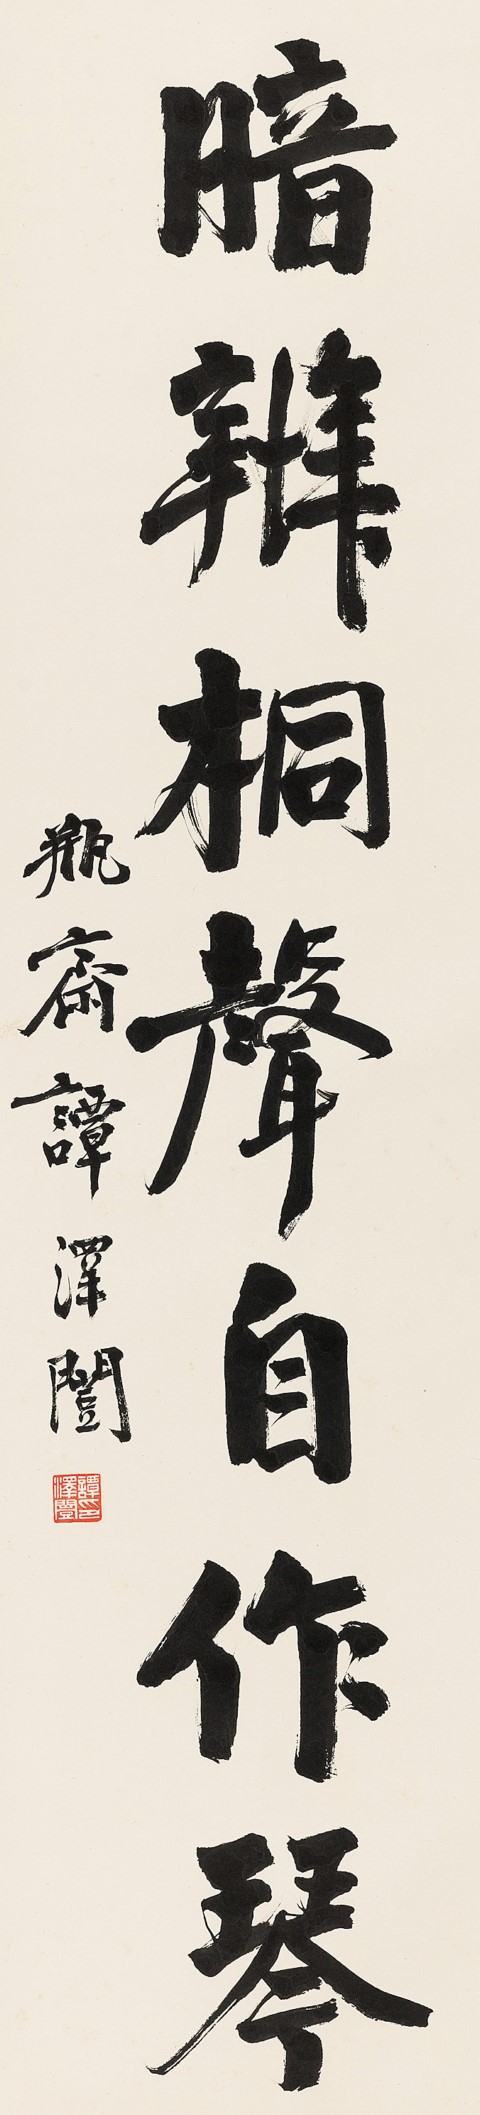 暗辨桐聲自作琴
瓶齋譚澤闓
譚澤闓印